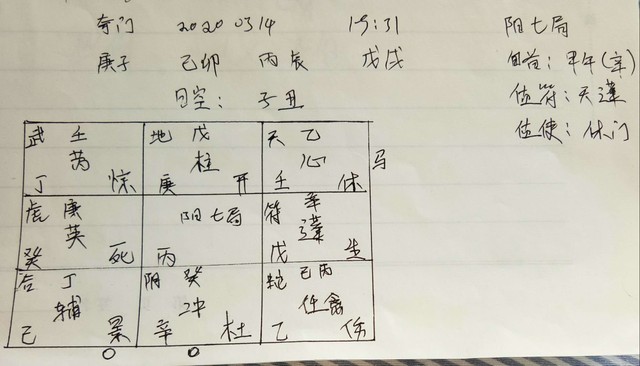 奇门 20200314 19:31 阳七局
庚子 己卯 丙辰 戊戌 旬首:甲午(辛)
日空:子丑 值符:天蓬
值使:休门
武 壬 地 戊 天 乙
芮 柱 心 马
丁 惊 庚 开 壬 休
虎 庚 阳七局 符 辛
英 蓬
癸 死 丙 戊 生
合 丁 阴 癸 蛇 己丙
辅 冲 任禽
己 景 辛 杜 乙 伤
○ ○